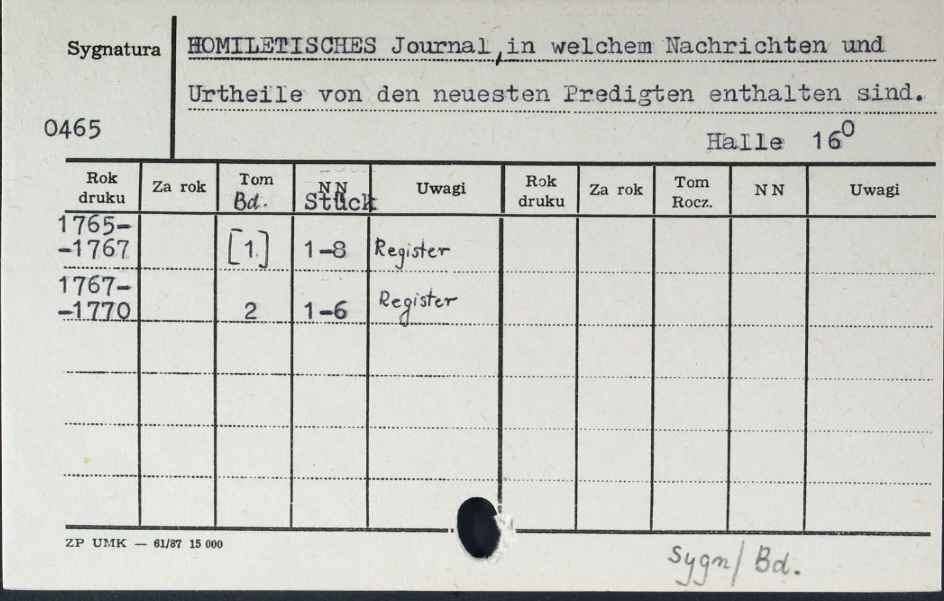 Sygnatura
HOMILETISCHES Journal, in welchem Nachrichten und
Urtheile von den neuesten Predigten enthalten sind.
0465
Halle 16⁰
Rok druku Za rok Tom Bd. NN Stück Uwagi Rok druku Za rok Tom Rocz. NN Uwagi
1765-
-1767 [1] 1-8 Register
1767-
-1770 2 1-6 Register
ZP UMK — 61/87 15 000
Sygn/Bd.